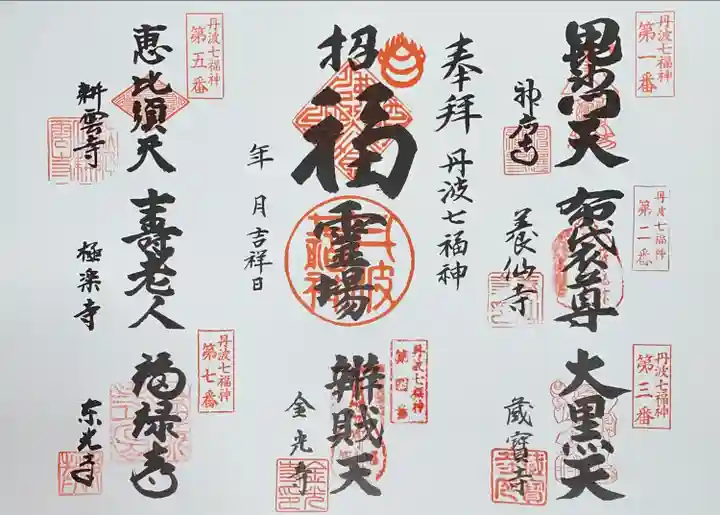 丹波七福神
第一番
毘沙門天
神応寺
丹波七福神
第二番
布袋尊
養仙寺
丹波七福神
第三番
大黒天
蔵寳寺
奉拝 丹波七福神
招福
霊場
年 月 吉祥日
丹波七福神
第四番
辨財天
金光寺
丹波七福神
第五番
恵比須天
耕雲寺
寿老人
極楽寺
丹波七福神
第七番
福禄寿
东光寺